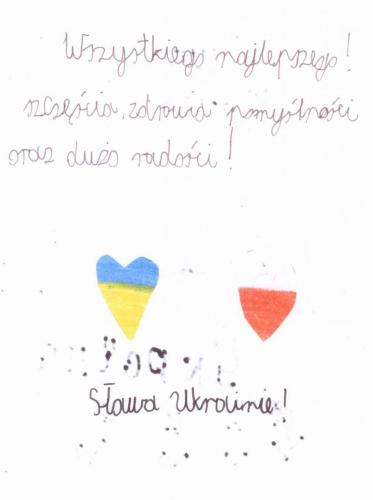 Wszystkiego najlepszego!
szczęścia, zdrowia pomyślności
oraz dużo radości!
Sława Ukrainie!